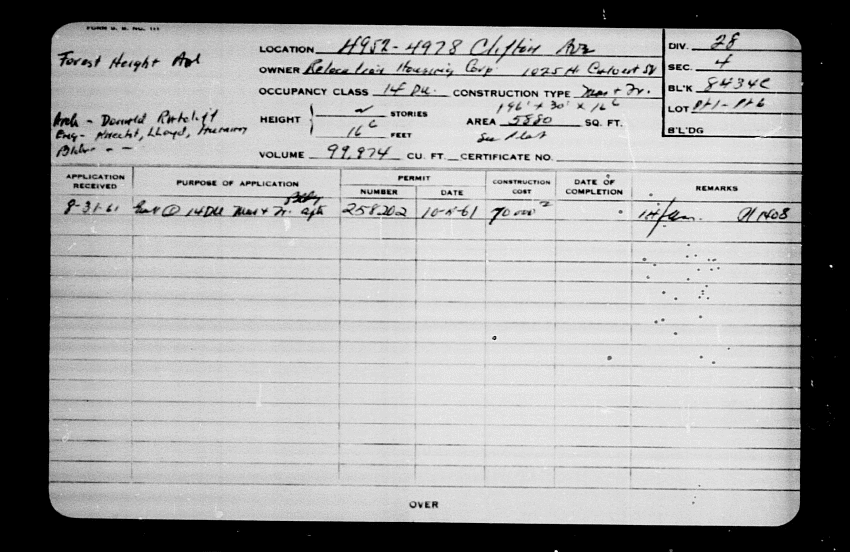 FORM B. E. NO. 111
Forest Height Ave
LOCATION 4952-4978 Clifton Ave
OWNER Relocation Housing Corp. 1025 N. Calvert St
OCCUPANCY CLASS 14 Du. CONSTRUCTION TYPE Mas + Fr.
196' + 30' X 16 6
Arch - Donald Ratcliff
Eng - Knecht, Lloyd,
Bldr - -
HEIGHT
2 STORIES
16 6 FEET
AREA 5880 SQ. FT.
See Plat
VOLUME 99,974 CU. FT. CERTIFICATE NO.
DIV. 28
SEC. 4
BL'K 8434C
LOT Pt 1 - Pt 6
B'L'DG
APPLICATION RECEIVED
PURPOSE OF APPLICATION
PERMIT
NUMBER
DATE
CONSTRUCTION COST
DATE OF COMPLETION
REMARKS
Bldg
8-31-61 1 14 Du Mas + Fr. apts 258202 70000 A 1408
OVER